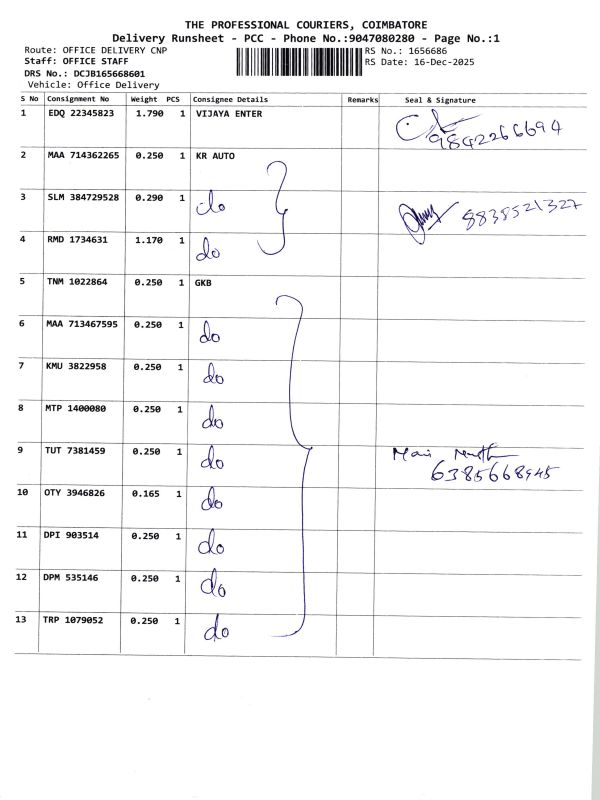 THE PROFESSIONAL COURIERS, COIMBATORE
Delivery Runsheet - PCC - Phone No.:9047080280 - Page No.:1
Route: OFFICE DELIVERY CNP RS No.: 1656686
Staff: OFFICE STAFF RS Date: 16-Dec-2025
DRS No.: DCJB165668601
Vehicle: Office Delivery
S No Consignment No Weight PCS Consignee Details Remarks Seal & Signature
1 EDQ 22345823 1.790 1 VIJAYA ENTER
9842266694
2 MAA 714362265 0.250 1 KR AUTO
3 SLM 384729528 0.290 1 do 8838521327
4 RMD 1734631 1.170 1 do
5 TNM 1022864 0.250 1 GKB
6 MAA 713467595 0.250 1 do
7 KMU 3822958 0.250 1 do
8 MTP 1400080 0.250 1 do
9 TUT 7381459 0.250 1 do
6385668945
10 OTY 3946826 0.165 1 do
11 DPI 903514 0.250 1 do
12 DPM 535146 0.250 1 do
13 TRP 1079052 0.250 1 do